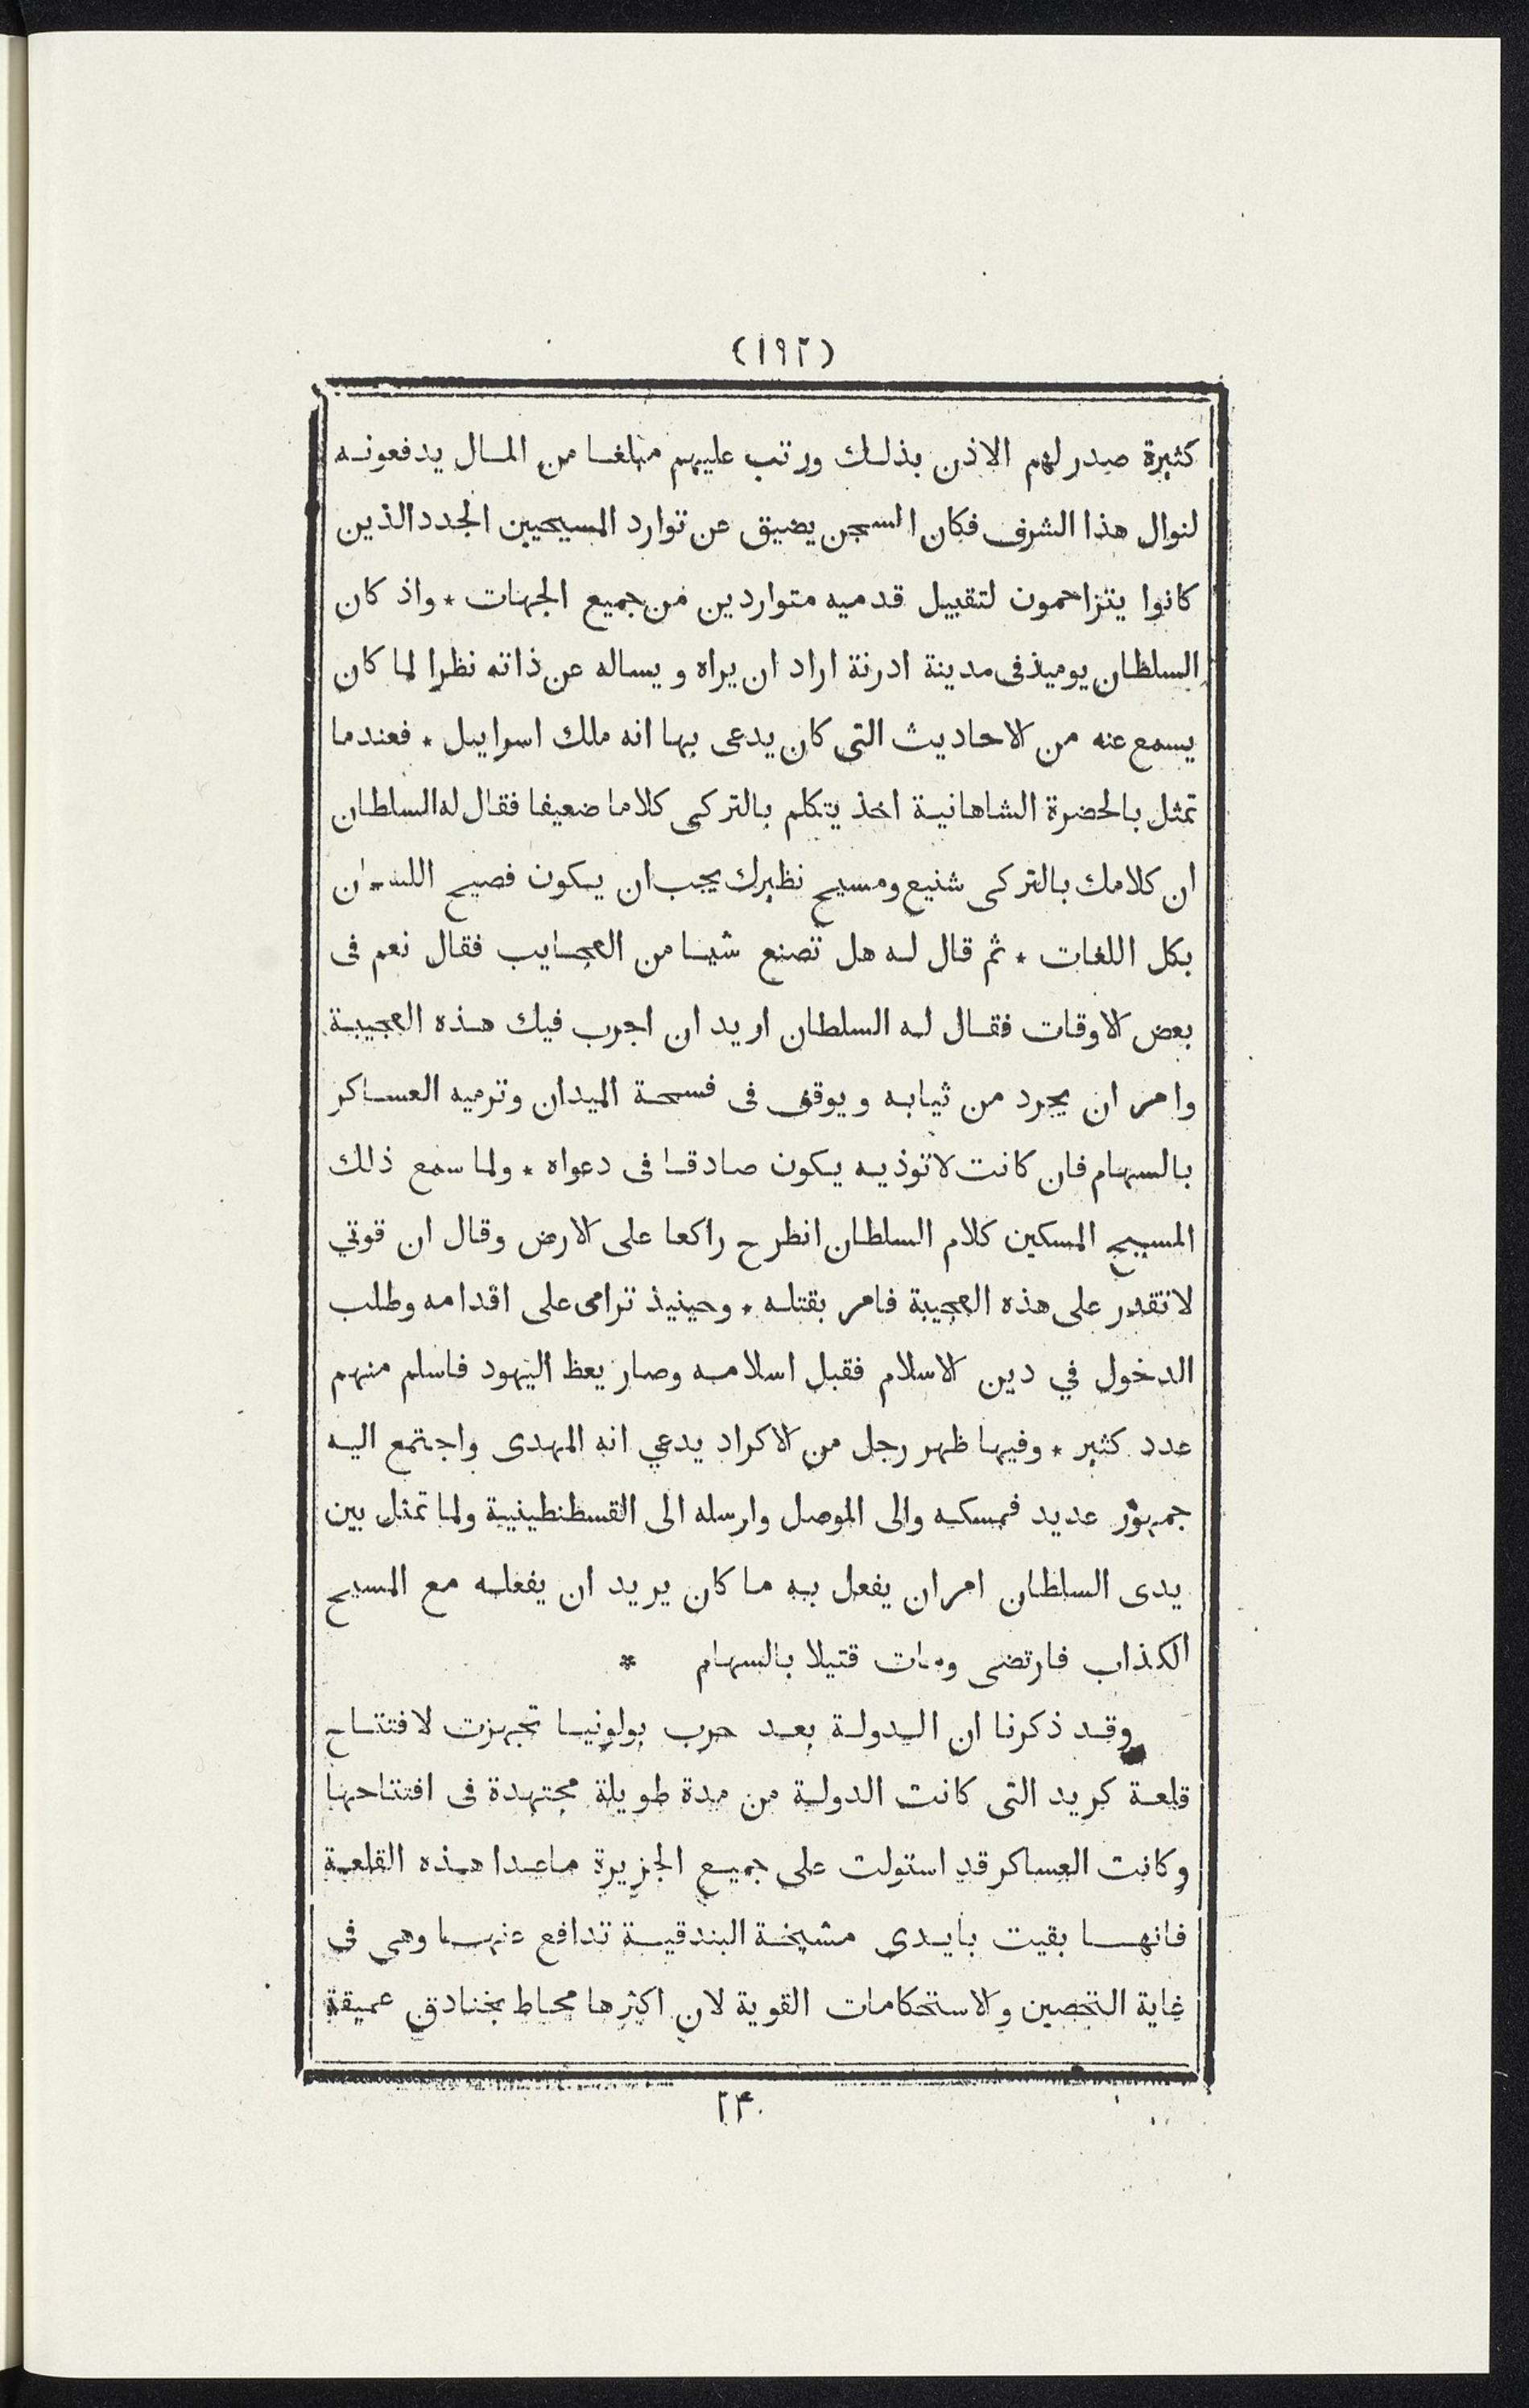 (١٩٢)
كثيرة صدر لهم الاذن بذلك ورتب عليهم مبلغا من المال يدفعونه
لنوال هذا الشرف فكان السجن يضيق عن توارد المسيحيين الجدد الذين
كانوا يتزاحمون لتقبيل قدميه متواردين من جميع الجهات * واذ كان
السلطان يوميذ فى مدينة ادرنة اراد ان يراه ويساله عن ذاته نظرا لما كان
يسمع عنه من الاحاديث التى كان يدعى بها انه ملك اسراييل * فعندما
تمثل بالحضرة الشاهانية اخذ يتكلم بالتركى كلاما ضعيفا فقال له السلطان
ان كلامك بالتركى شنيع ومسيح نظيرك يجب ان يكون فصيح اللسان
بكل اللغات * ثم قال له هل تصنع شيا من العجايب فقال نعم فى
بعض الاوقات فقال له السلطان اريد ان اجرب فيك هذه العجيبة
وامر ان يجرد من ثيابه ويوقف فى فسحة الميدان وترميه العساكر
بالسهام فان كانت لا توذيه يكون صادقا فى دعواه * ولما سمع ذلك
المسيح المسكين كلام السلطان انطرح راكعا على الارض وقال ان قوتي
لا تقدر على هذه العجيبة فامر بقتله * وحينيذ ترامى على اقدامه وطلب
الدخول في دين الاسلام فقبل اسلامه وصار يعظ اليهود فاسلم منهم
عدد كثير * وفيها ظهر رجل من الاكراد يدعي انه المهدى واجتمع اليه
جمهور عديد فمسكه والى الموصل وارسله الى القسطنطينية ولما تمثل بين
يدى السلطان امر ان يفعل به ما كان يريد ان يفعله مع المسيح
الكذاب فارتضى ومات قتيلا بالسهام *
وقد ذكرنا ان الدولة بعد حرب بولونيا تجهزت لافتتاح
قلعة كريد التى كانت الدولة من مدة طويلة مجتهدة فى افتتاحها
وكانت العساكر قد استولت على جميع الجزيرة ما عدا هذه القلعة
فانها بقيت بايدى مشيخة البندقية تدافع عنها وهى فى
غاية التحصين والاستحكامات القوية لان اكثرها محاط بخنادق عميقة
٢٤